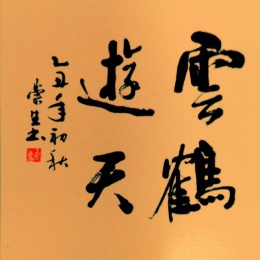 雲鶴
遊天
乙丑年初秋
崇生書